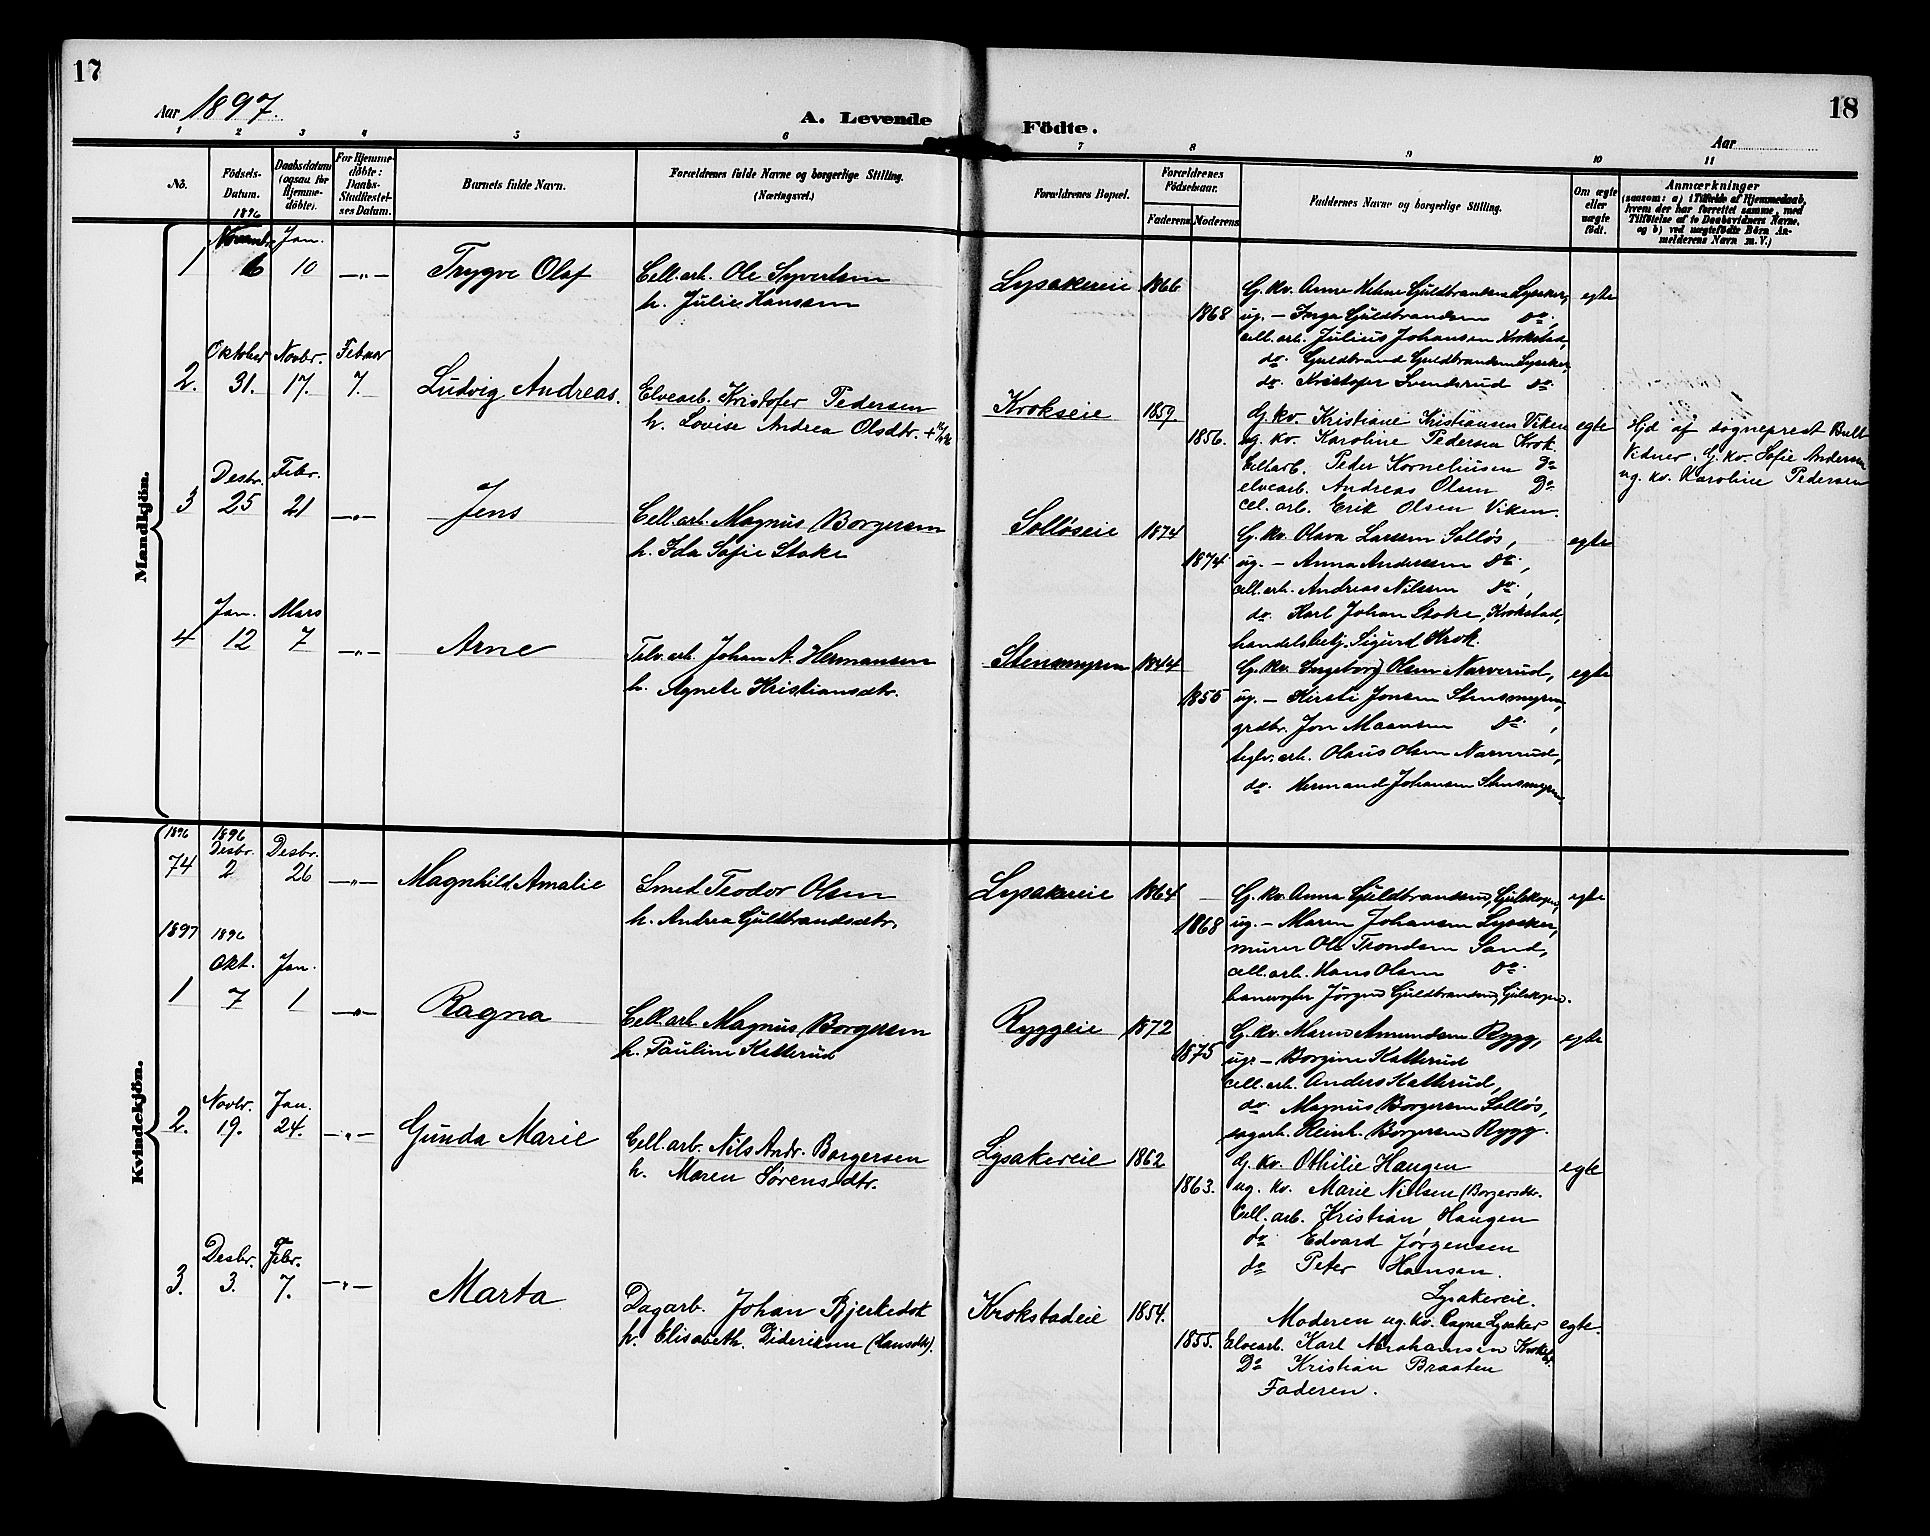 17
18
Aar 1897.
A. Levende Födte.
Aar
1 2 3 4 5 6 7 8 9 10 11
No.
Födsels-Datum.
Daabsdatum (ogsaa for Hjemmedöbte).
For Hjemmedöbte: Daabs-Stadfæstelses Datum.
Barnets fulde Navn.
Forældrenes fulde Navne og borgerlige Stilling. (Næringsvei.)
Forældrenes Bopæl.
Forældrenes Födselsaar.
Faderens
Moderens
Faddernes Navne og borgerlige Stilling.
Om ægte eller uægte födt.
Anmærkninger
(saasom: a) i Tilfælde af Hjemmedaab, hvem der har forrettet samme, med Tilföielse af to Daabsvidners Navne, og b) ved uægtefödte Börn Anmelderens Navn m. V.)
Mandkjön.
1896
1 16 Jan. 10 —„— Trygve Olaf
Cell.arb. Ole Syvertsen
h. Julie Hansen
Lysakereie 1866 1868
G. kv. Anne Helene Guldbrandsen Lysaker,
ug. — Inga Guldbrandsen do.,
cell. arb. Julius Johansen Krokstad,
do. Guldbrand Guldbrandsen Lysaker,
do. Kristofer Svenderud do.
egte
2. Oktober 31. Novbr. 17. Februar 7. Ludvig Andreas.
Elvearb. Kristofer Pedersen
h. Lovise Andrea Olsdtr. +
Krokseie 1859 1856.
G. kv. Kristiane Kristiansen Viken
ug. kv. Karoline Pedersen Krok.
Cellarb. Peder Korneliusen Do
elvearb. Andreas Olsen Do
cel. arb. Erik Olsen Viken.
egte
Hjd af sogneprest Bull
Vidner: G. kv. Sofie Andersen
ug. kv. Karoline Pedersen
3 Desbr. 25 Febr. 21 —„— Jens
Cell.arb. Magnus Borgersen
h. Ida Sofie Stoke
Solløseie 1874 1874
G. kv. Olava Larsen Solløs,
ug. — Anna Andersen do.,
cell.arb. Andreas Nilsen do.,
do. Karl Johan Stoke, Krokstad,
handelsbetj. Sigurd Krok.
egte
4 Jan. 12 Mars 7 —„— Arne
Telv.arb. Johan A. Hermansen
h. Agnete Kristiansdtr.
Stensmyren 1844 1855
G. kv. Ingeborg Olsen Narverud,
ug. — Kirsti Jonsen Stensmyren,
grdbr. Jon Maansen do.,
teglv.arb. Olaus Olsen Narverud,
do. Herman Johansen Stensmyren.
egte
Kvindekjön.
1896 74 1896 Desbr. 2 Desbr. 26 —„— Magnhild Amalie
Smed Teodor Olsen
h. Andrea Guldbrandsdtr.
Lysakereie 1864 1868
G. kv. Anna Guldbrandsen,
ug. — Maren Johansen Lysaker,
murer Ole Trondsen Sand,
cell.arb. Hans Olsen do.
banevogter Jörgen Guldbrandsen,
egte
1897 1 1896 Okt. 7 Jan. 1 —„— Ragna
Cell.arb. Magnus Borgersen
h. Pauline Katterud
Ryggeie 1872 1875
G. kv. Maren Amundsen Rygg,
ug. — Borgine Katterud
cell.arb. Anders Katterud,
do. Magnus Borgersen Solløs,
sagarb. Reinh. Borgersen Rygg.
egte
2. Novbr. 19. Jan. 24. —„— Gunda Marie
Cell.arb. Nils Andr. Borgersen
h. Maren Sørensdtr.
Lysakereie 1862 1863.
G. kv. Othilie Haugen
ug. kv. Marie Nielsen (Borgersdtr.
Cell. arb. Kristian Haugen
do Edvard Jørgensen
do Peter Hansen.
Lysakereie.
egte
3. Desbr. 3. Febr. 7. —„— Marta
Dagarb. Johan Bjerkedok
h. Elisabeth Dideriksen (Hansdtr).
Krokstadeie 1854. 1855.
Moderen ug. kv. Ragna Lysaker
Elvearb. Karl Abrahamsen
Do Kristian Braaten
Faderen.
egte.